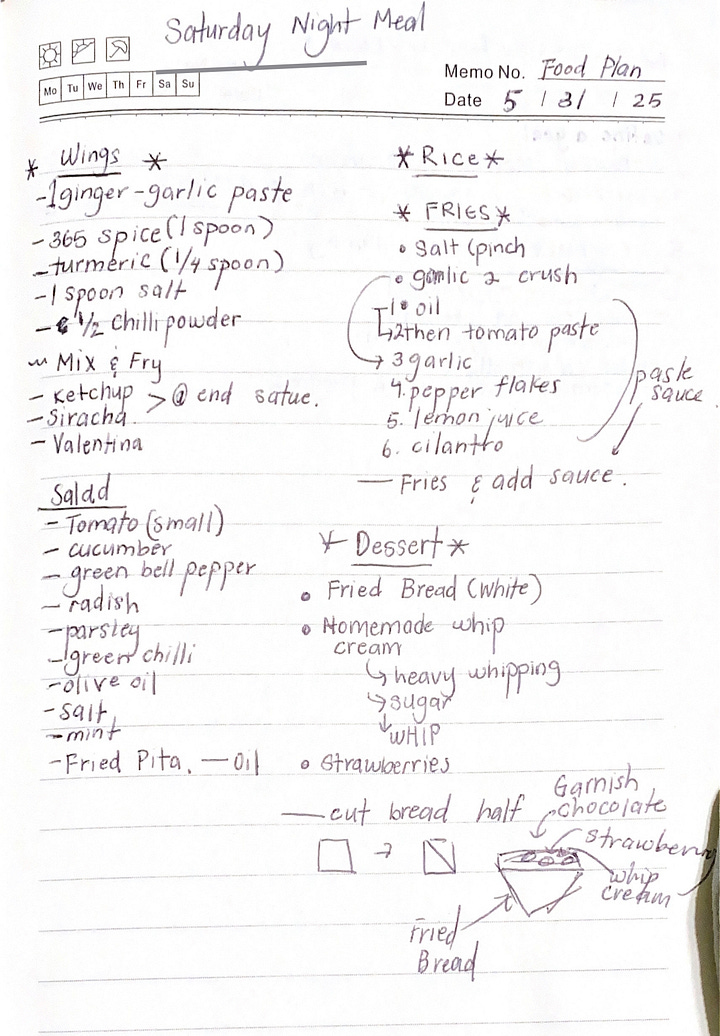 Saturday Night Meal
Mo Tu We Th Fr Sa Su
Memo No. Food Plan
Date 5 / 31 / 25
* Wings *
-1ginger-garlic paste
-365 spice (1 spoon)
-turmeric (1/4 spoon)
-1 spoon salt
- 1/2 chilli powder
~ Mix & Fry
- Ketchup > @ end satue.
-Siracha
- Valentina
Salad
- Tomato (small)
- cucumber
- green bell pepper
- radish
-parsley
-green chilli
-olive oil
-salt
-mint
-Fried Pita. — Oil
* Rice *
* FRIES *
• Salt (pinch
• garlic 2 crush
1• oil
↳2then tomato paste
→ 3 garlic
4. pepper flakes
5. lemon juice
6. cilantro
paste
sauce.
— Fries & add sauce.
* Dessert *
• Fried Bread (White)
• Homemade whip
cream
↳ heavy whipping
↳ sugar
↓ WHIP
• Strawberries
— cut bread half
Garnish
chocolate
strawberry
whip
cream
Fried
Bread